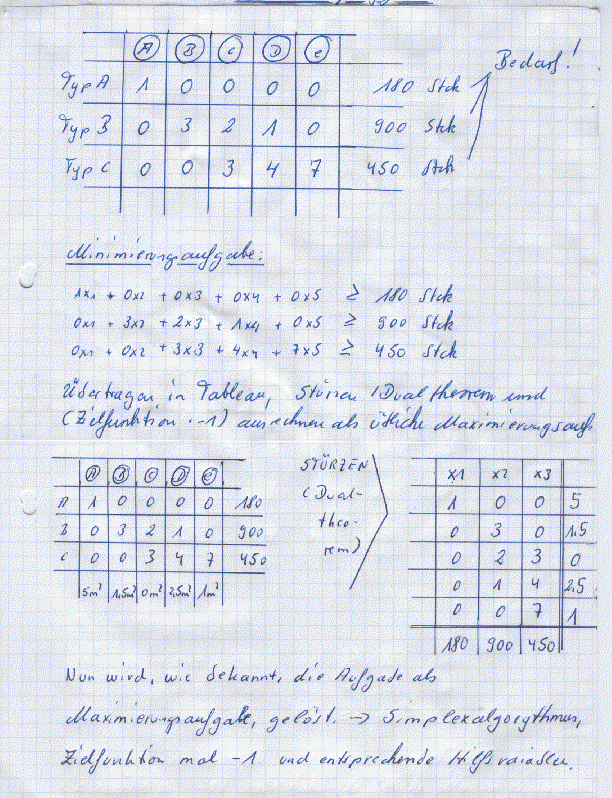 A B C D E
Typ A 1 0 0 0 0 180 Stck
Bedarf!
Typ B 0 3 2 1 0 900 Stck
Typ C 0 0 3 4 7 450 Stck
Minimierungsaufgabe:
1x1 + 0x2 + 0x3 + 0x4 + 0x5 ≥ 180 Stck
0x1 + 3x2 + 2x3 + 1x4 + 0x5 ≥ 900 Stck
0x1 + 0x2 + 3x3 + 4x4 + 7x5 ≥ 450 Stck
Übertragen in Tableau, Stürzen / Dualtheorem und
(Zielfunktion · -1) ausrechnen als übliche Maximierungsaufg
A B C D E
A 1 0 0 0 0 180
B 0 3 2 1 0 900
C 0 0 3 4 7 450
5m² 1,5m² 0m² 2,5m² 1m²
STÜRZEN
(Dual-
theo-
rem)
x1 x2 x3
1 0 0 5
0 3 0 1,5
0 2 3 0
0 1 4 2,5
0 0 7 1
180 900 450
Nun wird, wie bekannt, die Aufgabe als
Maximierungsaufgabe, gelöst. → Simplexalgorythmus,
Zielfunktion mal -1 und entsprechende